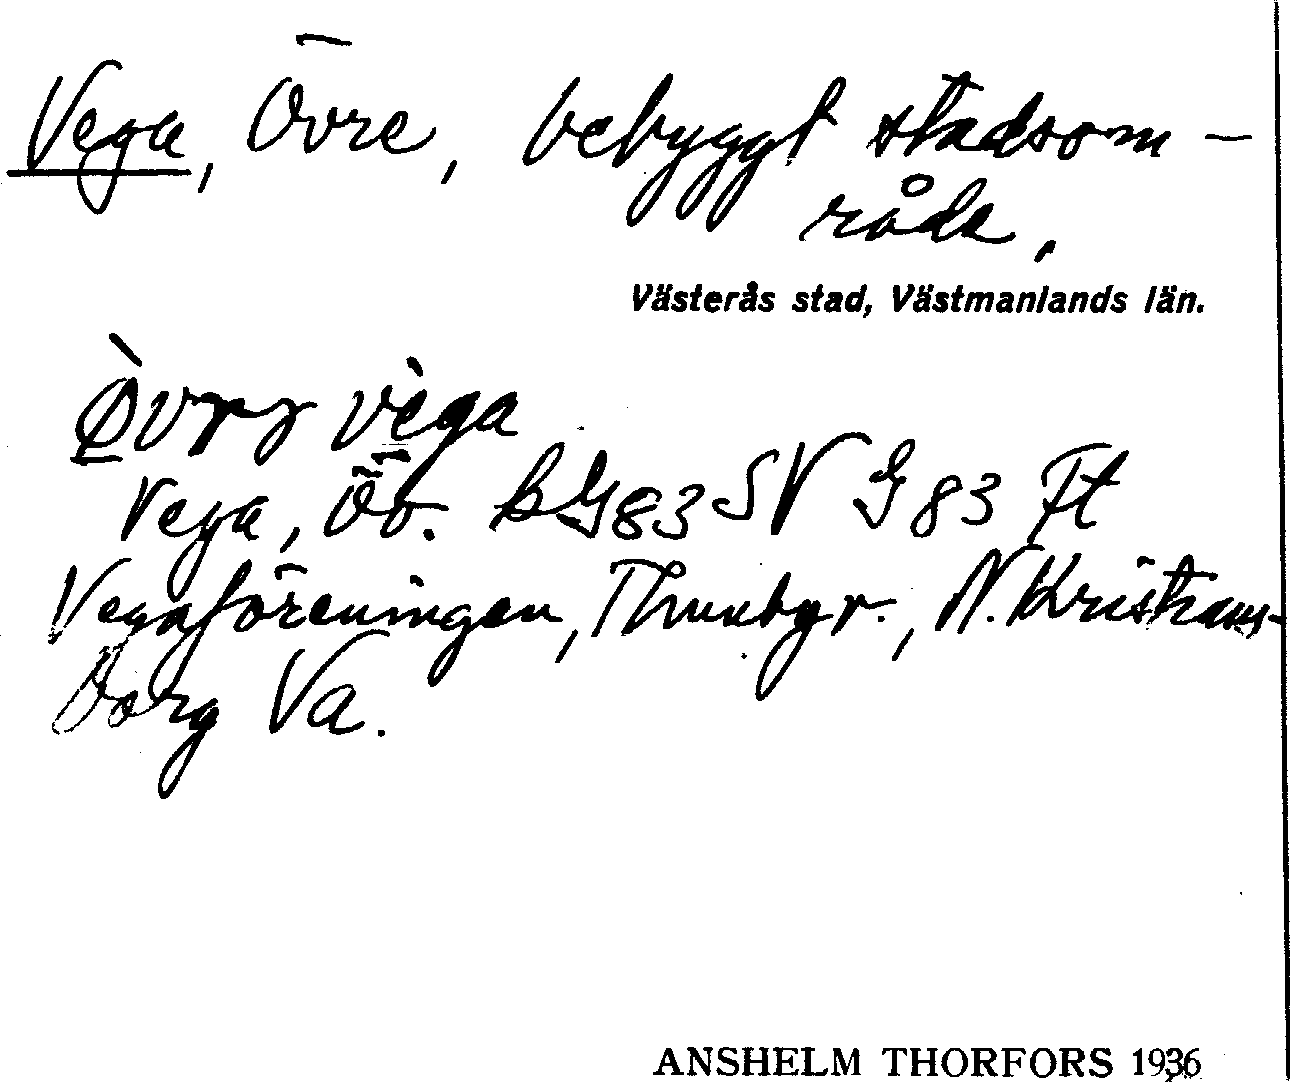 Vega, Övre, bebyggt stadsom-
råde.
Västerås stad, Västmanlands län.
vèga
Vega, Öv. BG83 SV G83 Ft
Vegaföreningen, Thunbgr., N. Kristians-
borg Va.
ANSHELM THORFORS 1936